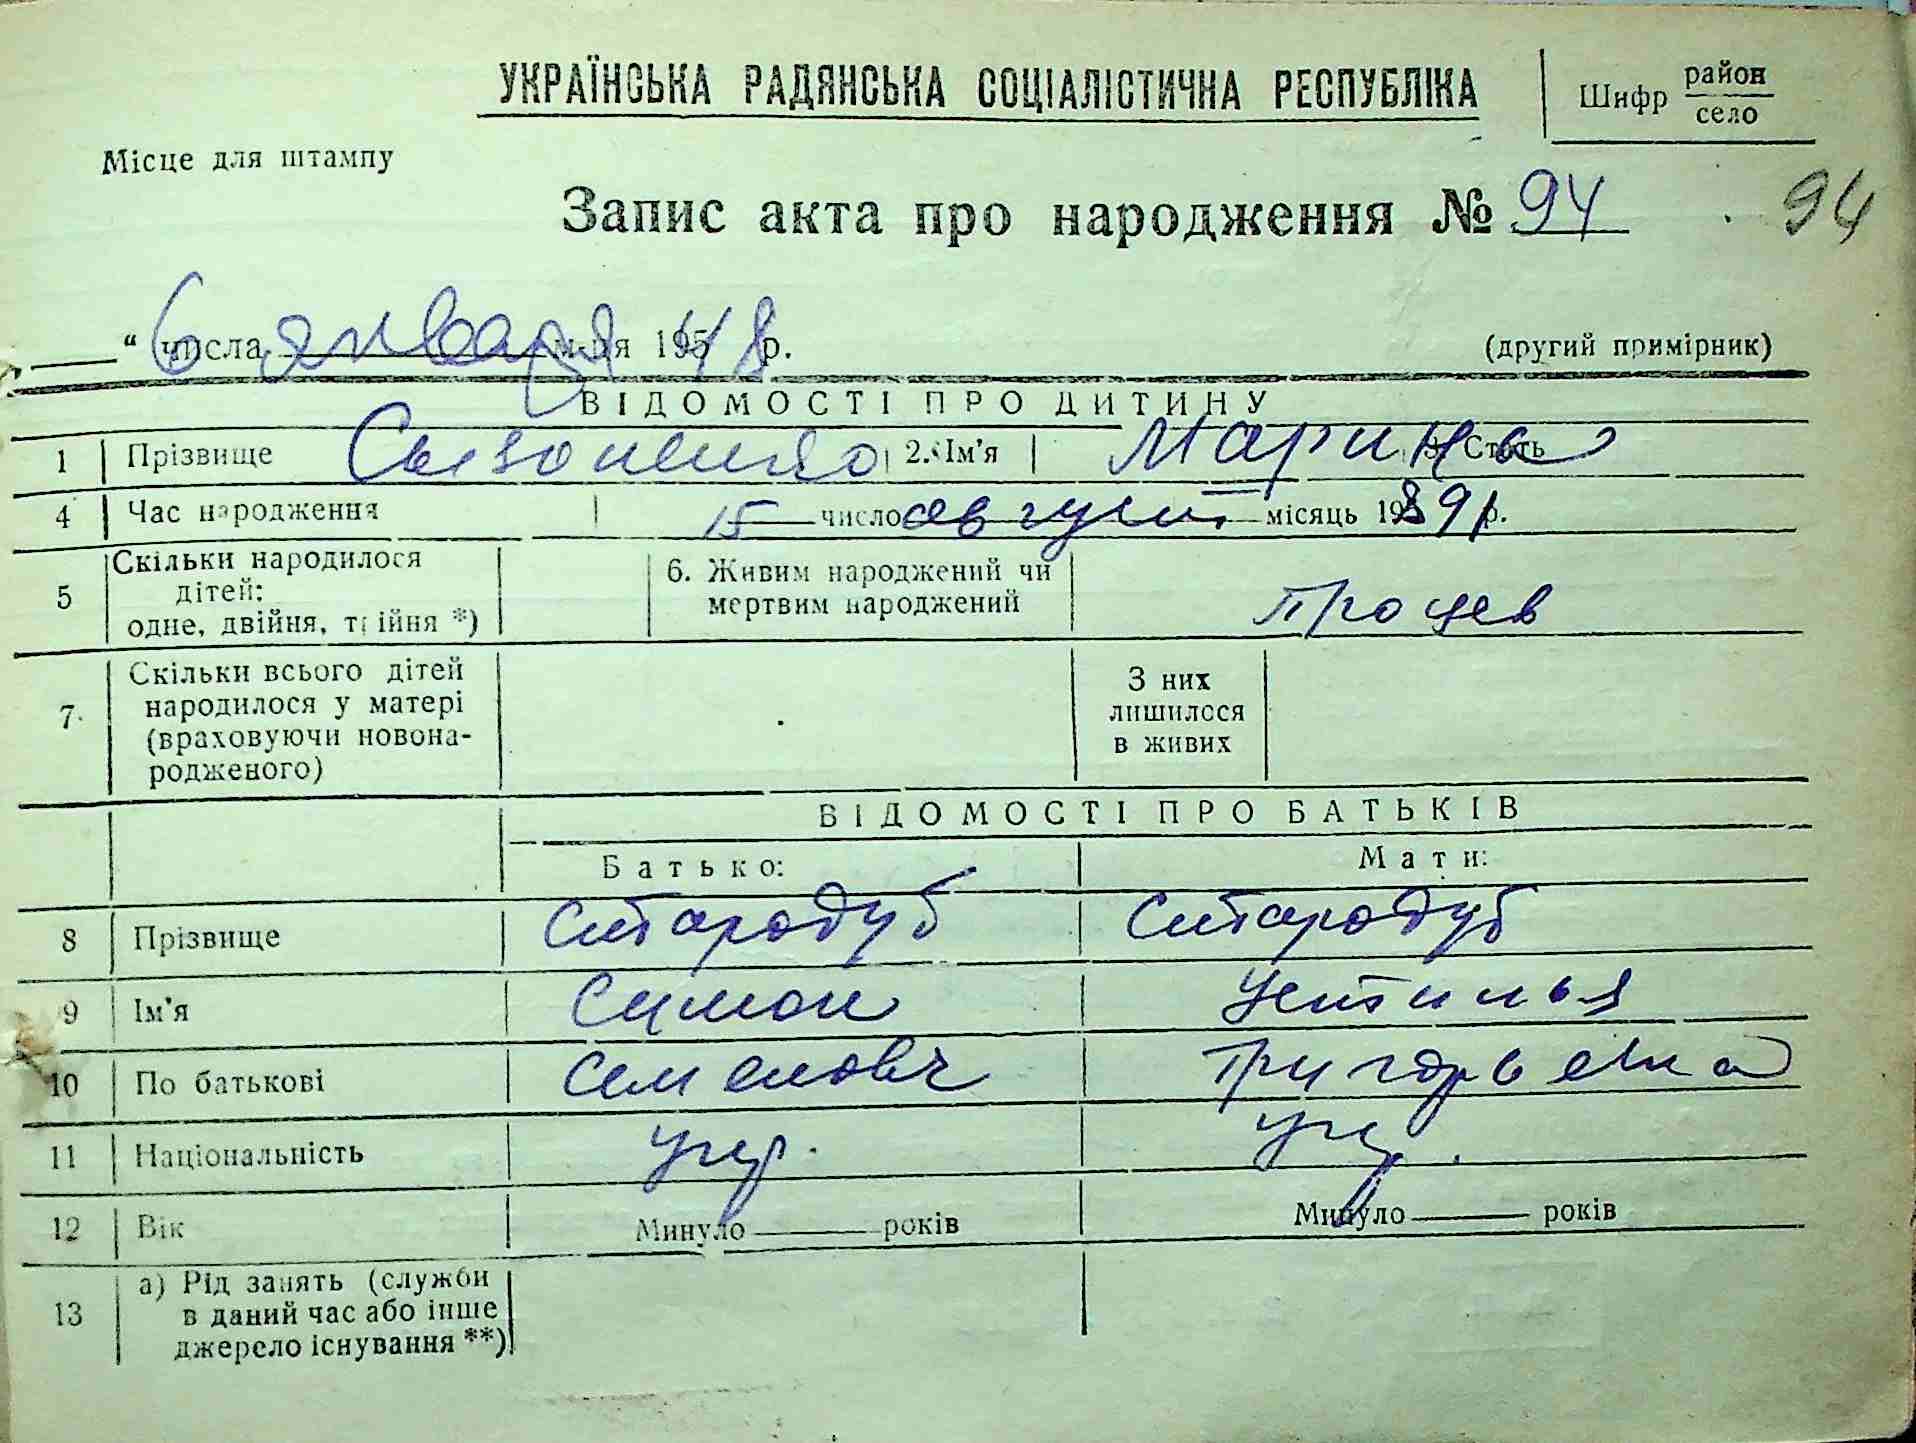 УКРАЇНСЬКА РАДЯНСЬКА СОЦІАЛІСТИЧНА РЕСПУБЛІКА
Шифр район село
Місце для штампу
Запис акта про народження № 94
94
" 6 числа января м-ця 195 48 р.
(другий примірник)
ВІДОМОСТІ ПРО ДИТИНУ
1 Прізвище Сызоненко 2. Ім'я Марина 3. Стать
4 Час народження 15 число август місяць 1891 р.
5 Скільки народилося дітей: одне, двійня, трійня *) 6. Живим народжений чи мертвим народжений
7. Скільки всього дітей народилося у матері (враховуючи новона-родженого) З них лишилося в живих
ВІДОМОСТІ ПРО БАТЬКІВ
Батько: Мати:
8 Прізвище Стародуб Стародуб
9 Ім'я Симон Устинья
10 По батькові Семенович Григорьевна
11 Національність укр. укр.
12 Вік Минуло років Минуло років
13 а) Рід занять (служби в даний час або інше джерело існування **)